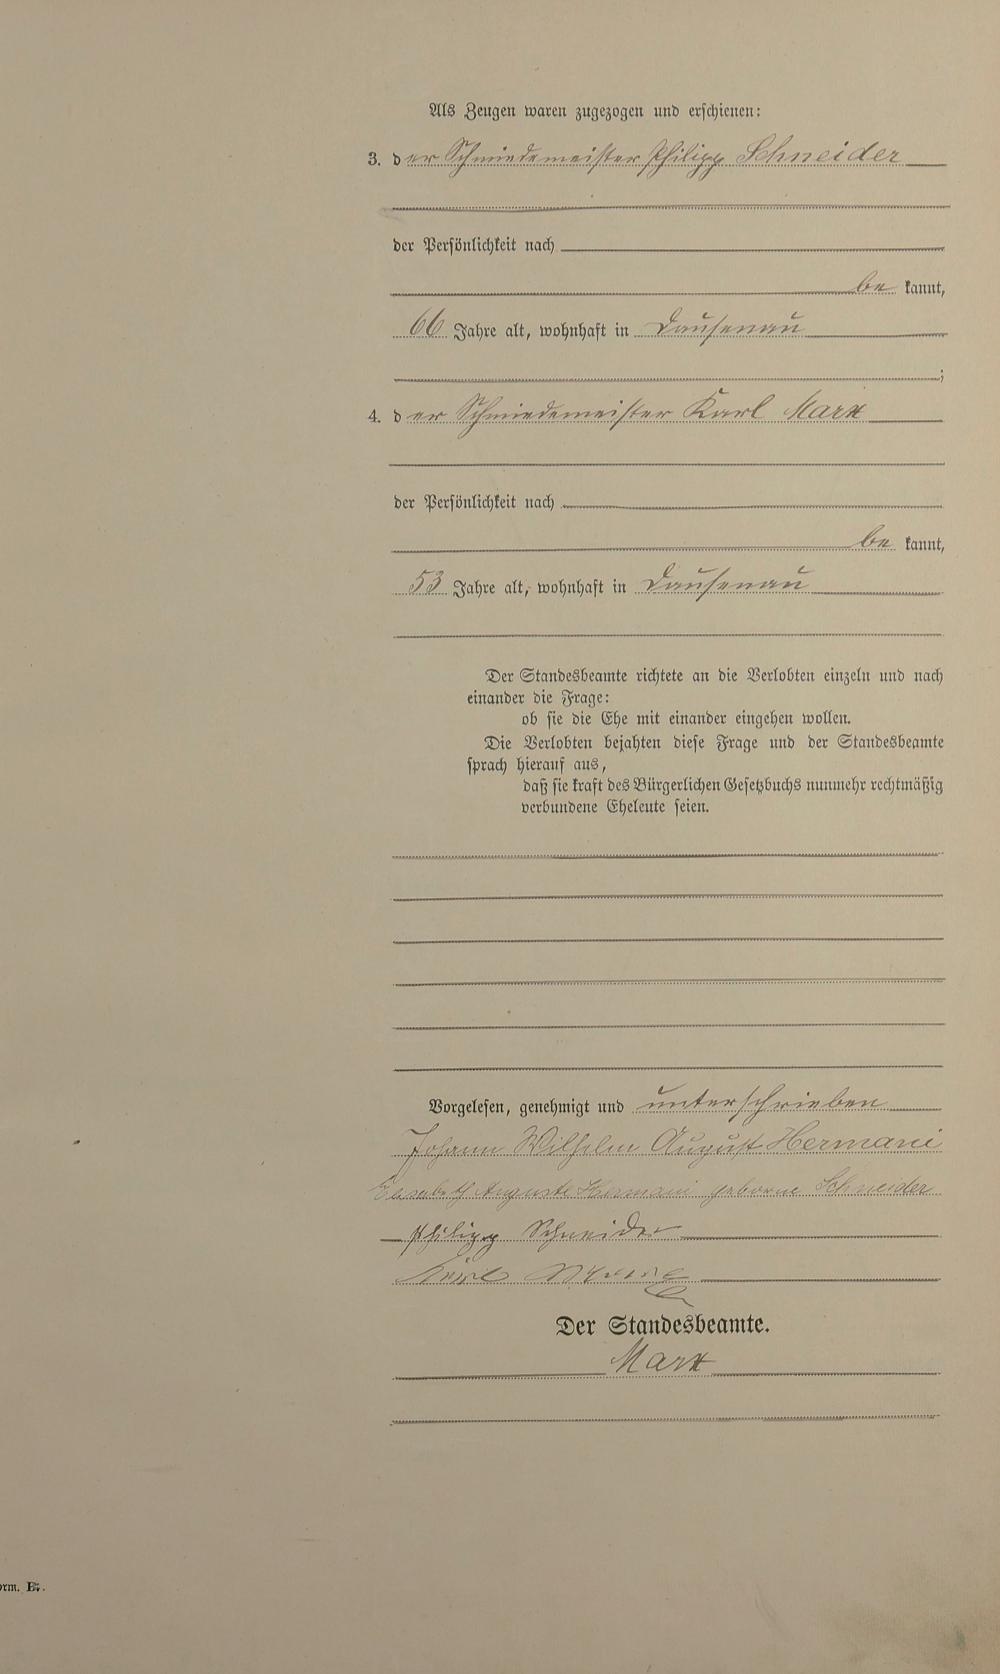 Als Zeugen waren zugezogen und erschienen:
3. der Schmiedemeister Philipp Schneider
der Persönlichkeit nach
be kannt,
66 Jahre alt, wohnhaft in Dausenau
;
4. der Schmiedemeister Karl Marx
der Persönlichkeit nach
be kannt,
53 Jahre alt, wohnhaft in Dausenau
Der Standesbeamte richtete an die Verlobten einzeln und nach
einander die Frage:
ob sie die Ehe mit einander eingehen wollen.
Die Verlobten bejahten diese Frage und der Standesbeamte
sprach hierauf aus,
daß sie kraft des Bürgerlichen Gesetzbuchs nunmehr rechtmäßig
verbundene Eheleute seien.
Vorgelesen, genehmigt und unterschrieben
Johann Wilhelm August Hermani
Elisabeth Auguste Hermani geborne Schneider
Philipp Schneider
Karl Marx
Der Standesbeamte.
Marx
orm. B.